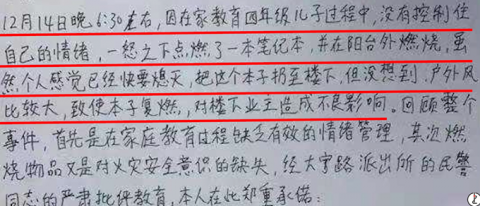 12月14日晚6:30左右,因在家教育四年级儿子过程中,没有控制住
自己的情绪,一怒之下点燃了一本笔记本,并在阳台外燃烧,虽
然个人感觉已经快要熄灭,把这个本子扔至楼下,但没想到户外风
比较大,致使本子复燃,对楼下业主造成不良影响。回顾整个
事件,首先是在家庭教育过程缺乏有效的情绪管理,其次燃
烧物品又是对火灾安全意识的缺失,经大宇路派出所的民警
同志的严肃批评教育,本人在此郑重承诺: